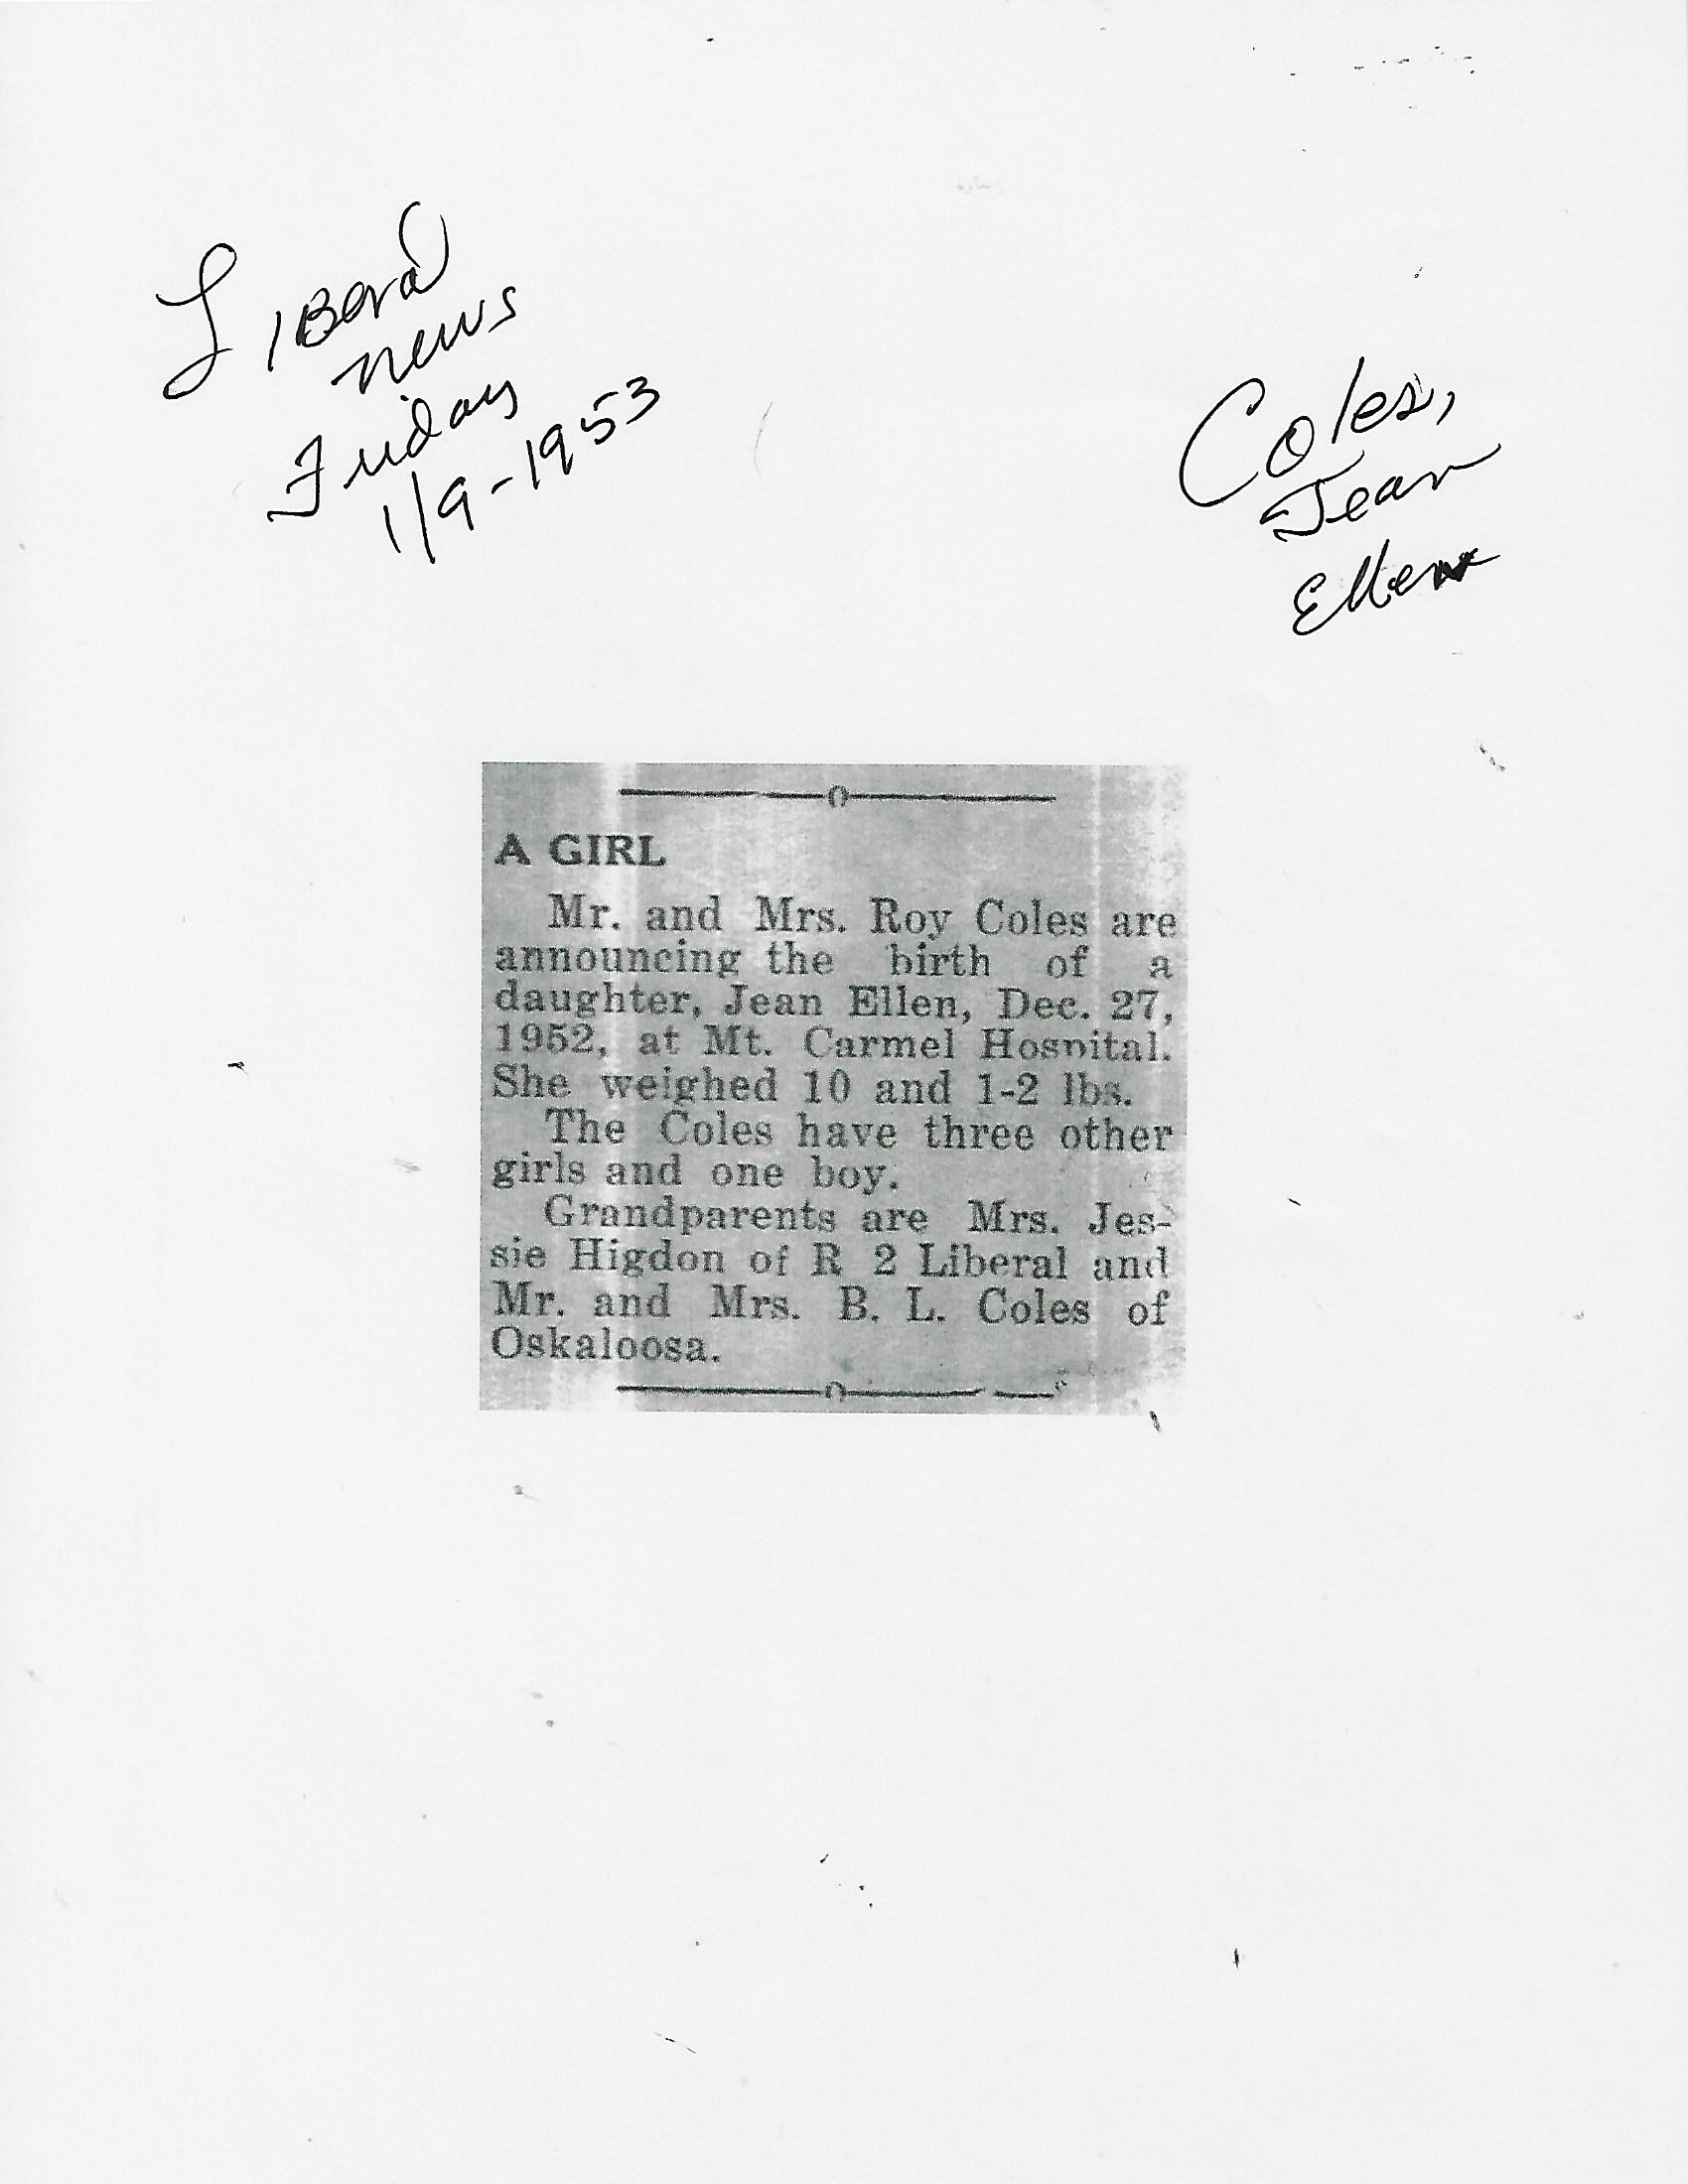 LIBeral
news
Friday
1/9-1953
Coles,
Jean
Ellen
A GIRL
Mr. and Mrs. Roy Coles are
announcing the birth of a
daughter, Jean Ellen, Dec. 27,
1952, at Mt. Carmel Hospital.
She weighed 10 and 1-2 lbs.
The Coles have three other
girls and one boy.
Grandparents are Mrs. Jes-
sie Higdon of R 2 Liberal and
Mr. and Mrs. B. L. Coles of
Oskaloosa.